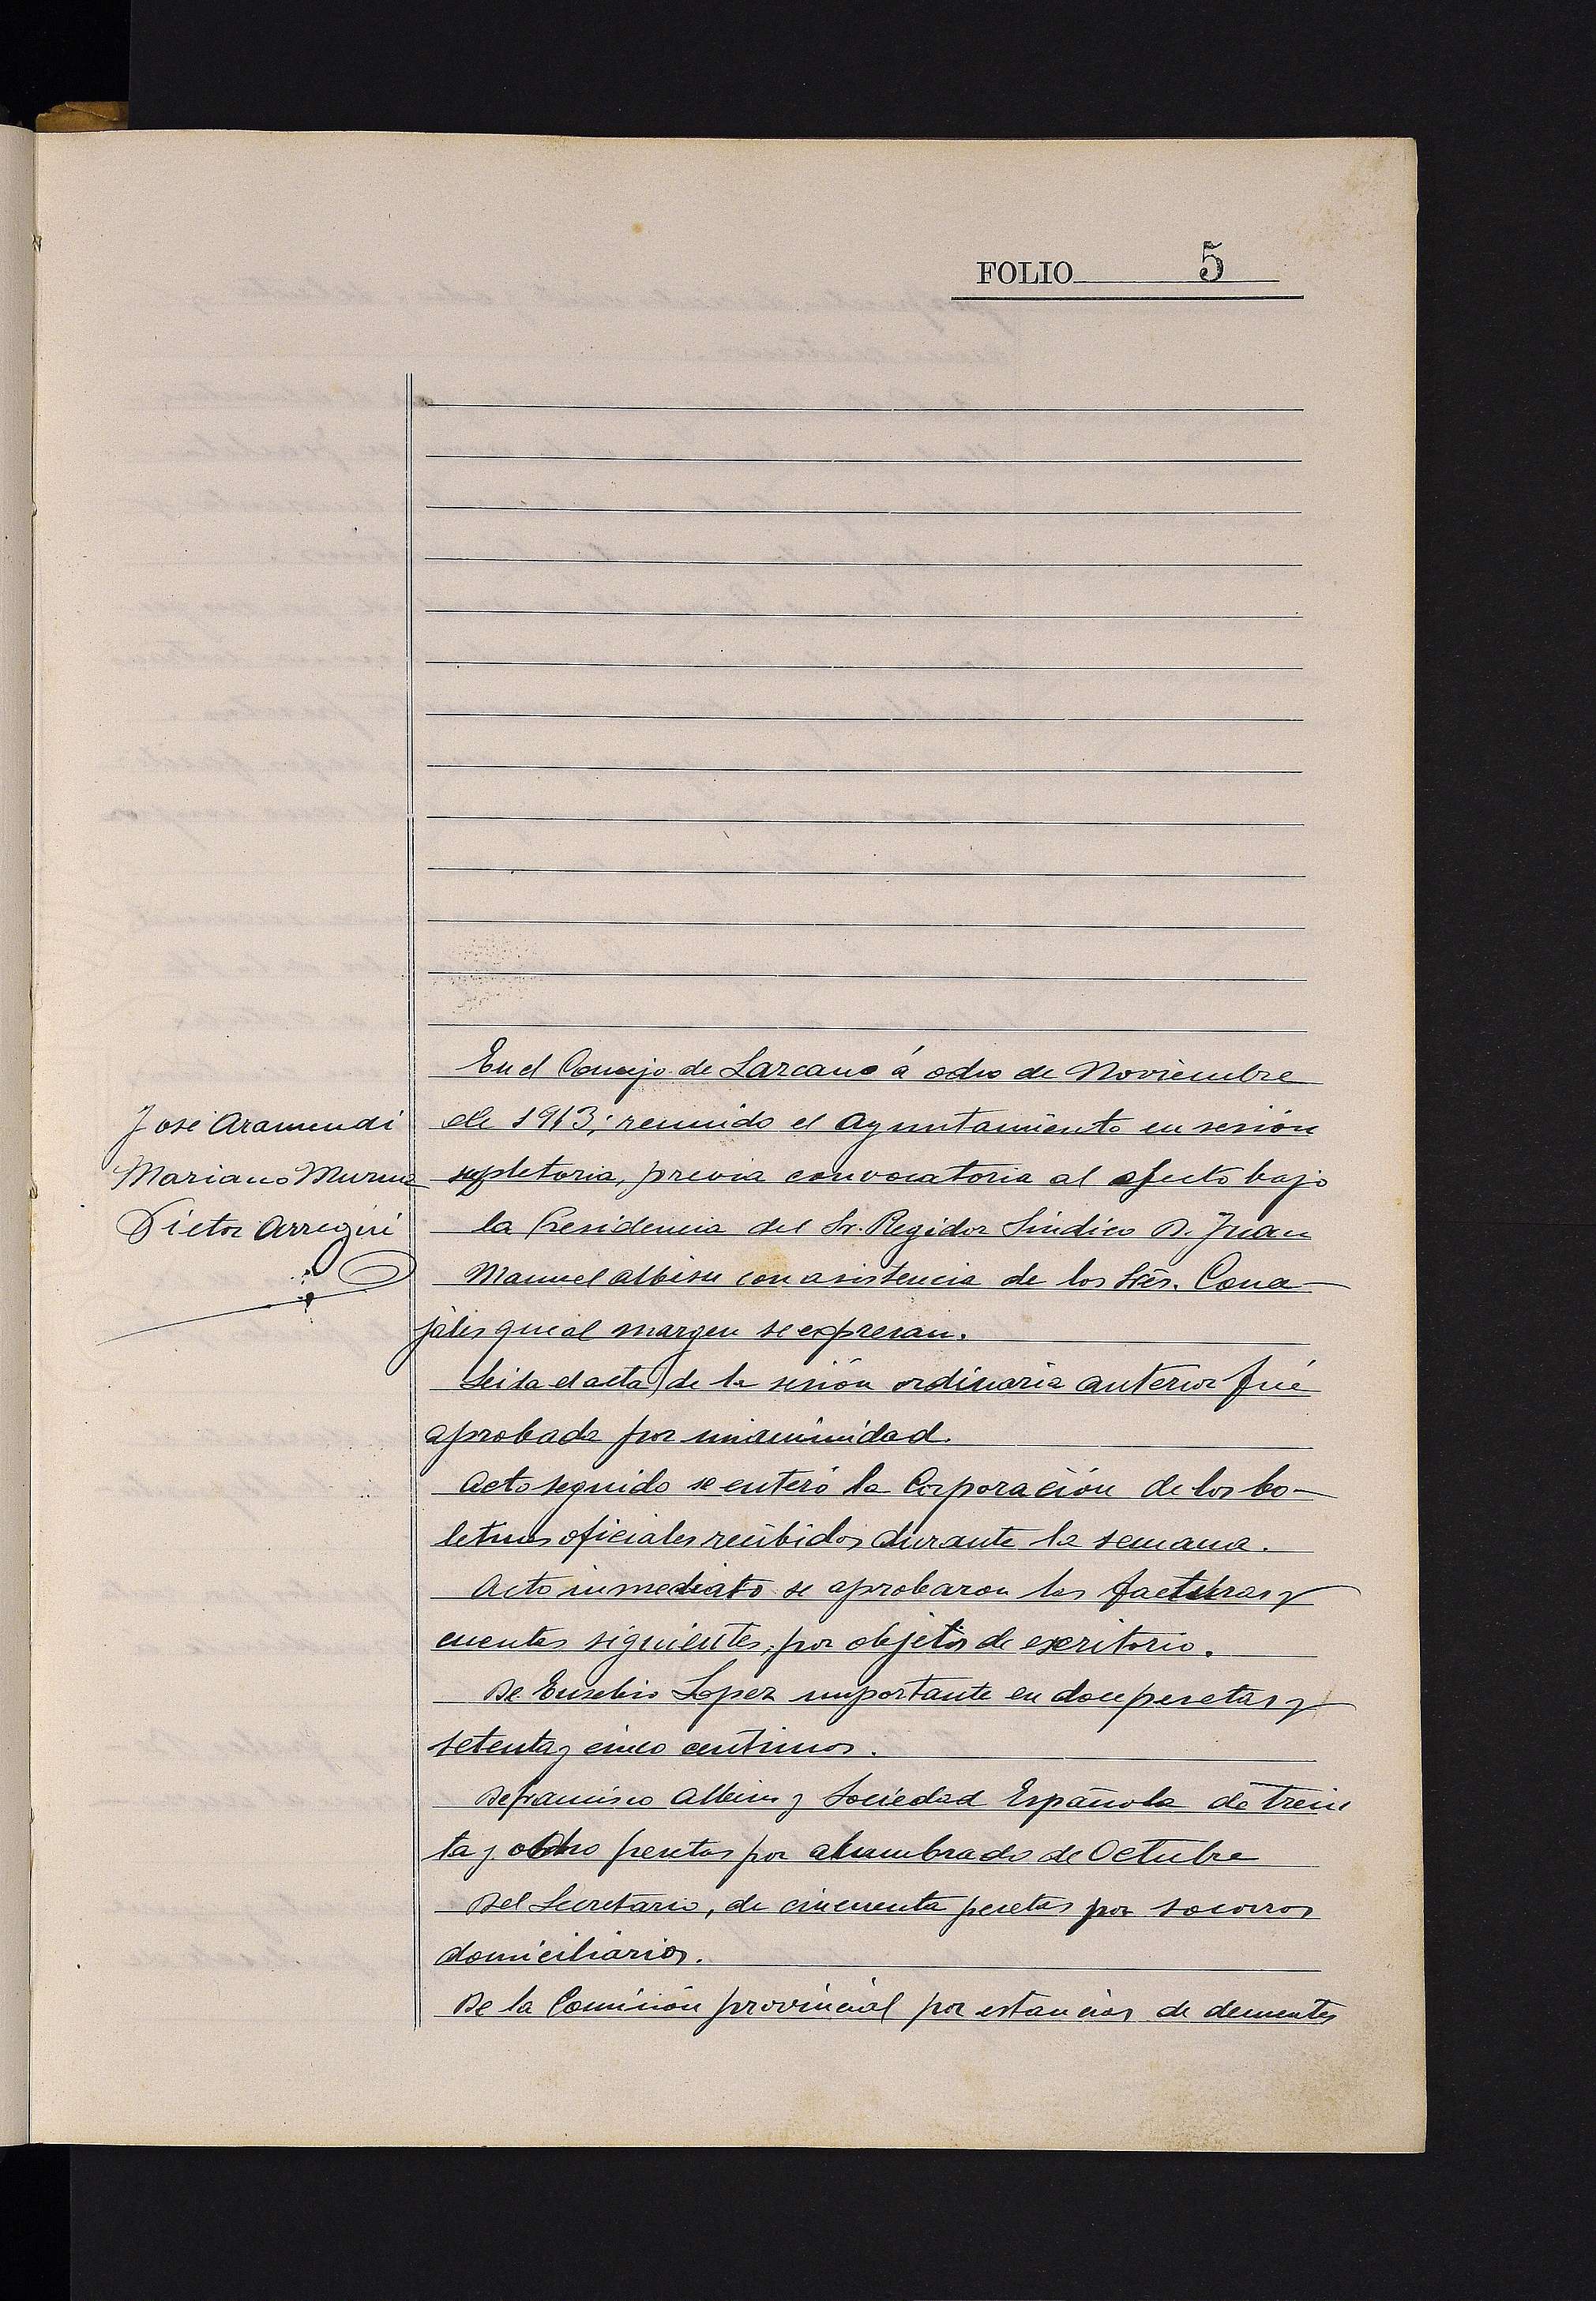 FOLIO 5
En el Concejo de Lazcano á ocho de Noviembre
José Aramendi
de 1913; reunido el Ayuntamiento en sesión
Mariano Murua
supletoria, previa convocatoria al efecto bajo
Victor Arregui
la Presidencia del Sr. Regidor Sindico D. Juan
Manuel Albisu con asistencia de los Sres. Conce-
jales que al margen se expresan.
Leida el acta de la sesión ordinaria anterior fué
aprobada por unanimidad.
Acto seguido se enteró la Corporación de los bo-
letines oficiales recibidos durante la semana.
Acto inmediato se aprobaron las facturas y
cuentas siguientes, por objetos de escritorio.
De Eusebio Lopez importante en doce pesetas y
setenta y cinco centimos.
De Francisco Albisu y Sociedad Española de trein
ta y ocho pesetas por alumbrado de Octubre
Del Secretario, de cincuenta pesetas por socorros
domiciliarios.
De la Comisión provincial por estancias de dementes